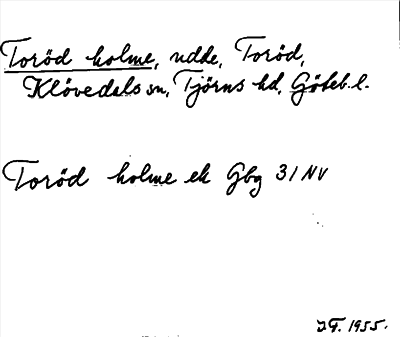 Toröd holme, udde, Toröd,
Klövedals sn, Tjörns hd, Göteb. l.
Toröd holme ek Gbg 31 NV
J.F. 1955.